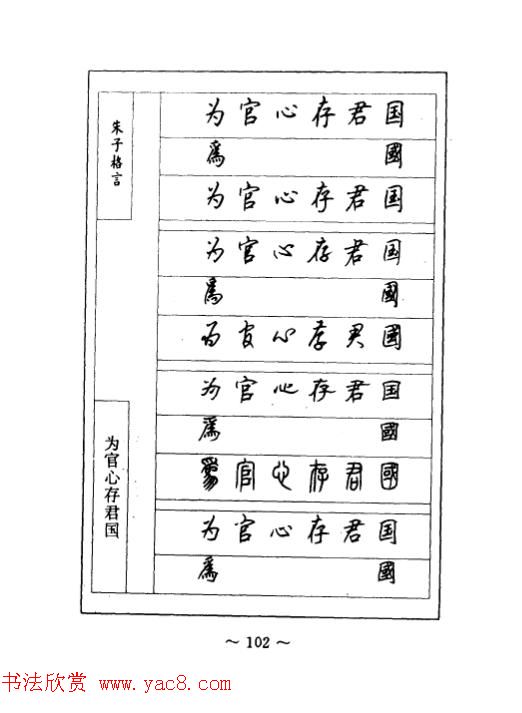 朱子格言
为官心存君国
为官心存君国
爲國
为官心存君国
为官心存君国
爲國
为官心存君國
为官心存君国
爲國
爲官心存君國
为官心存君国
爲國
～ 102 ～
书法欣赏 www.yac8.com